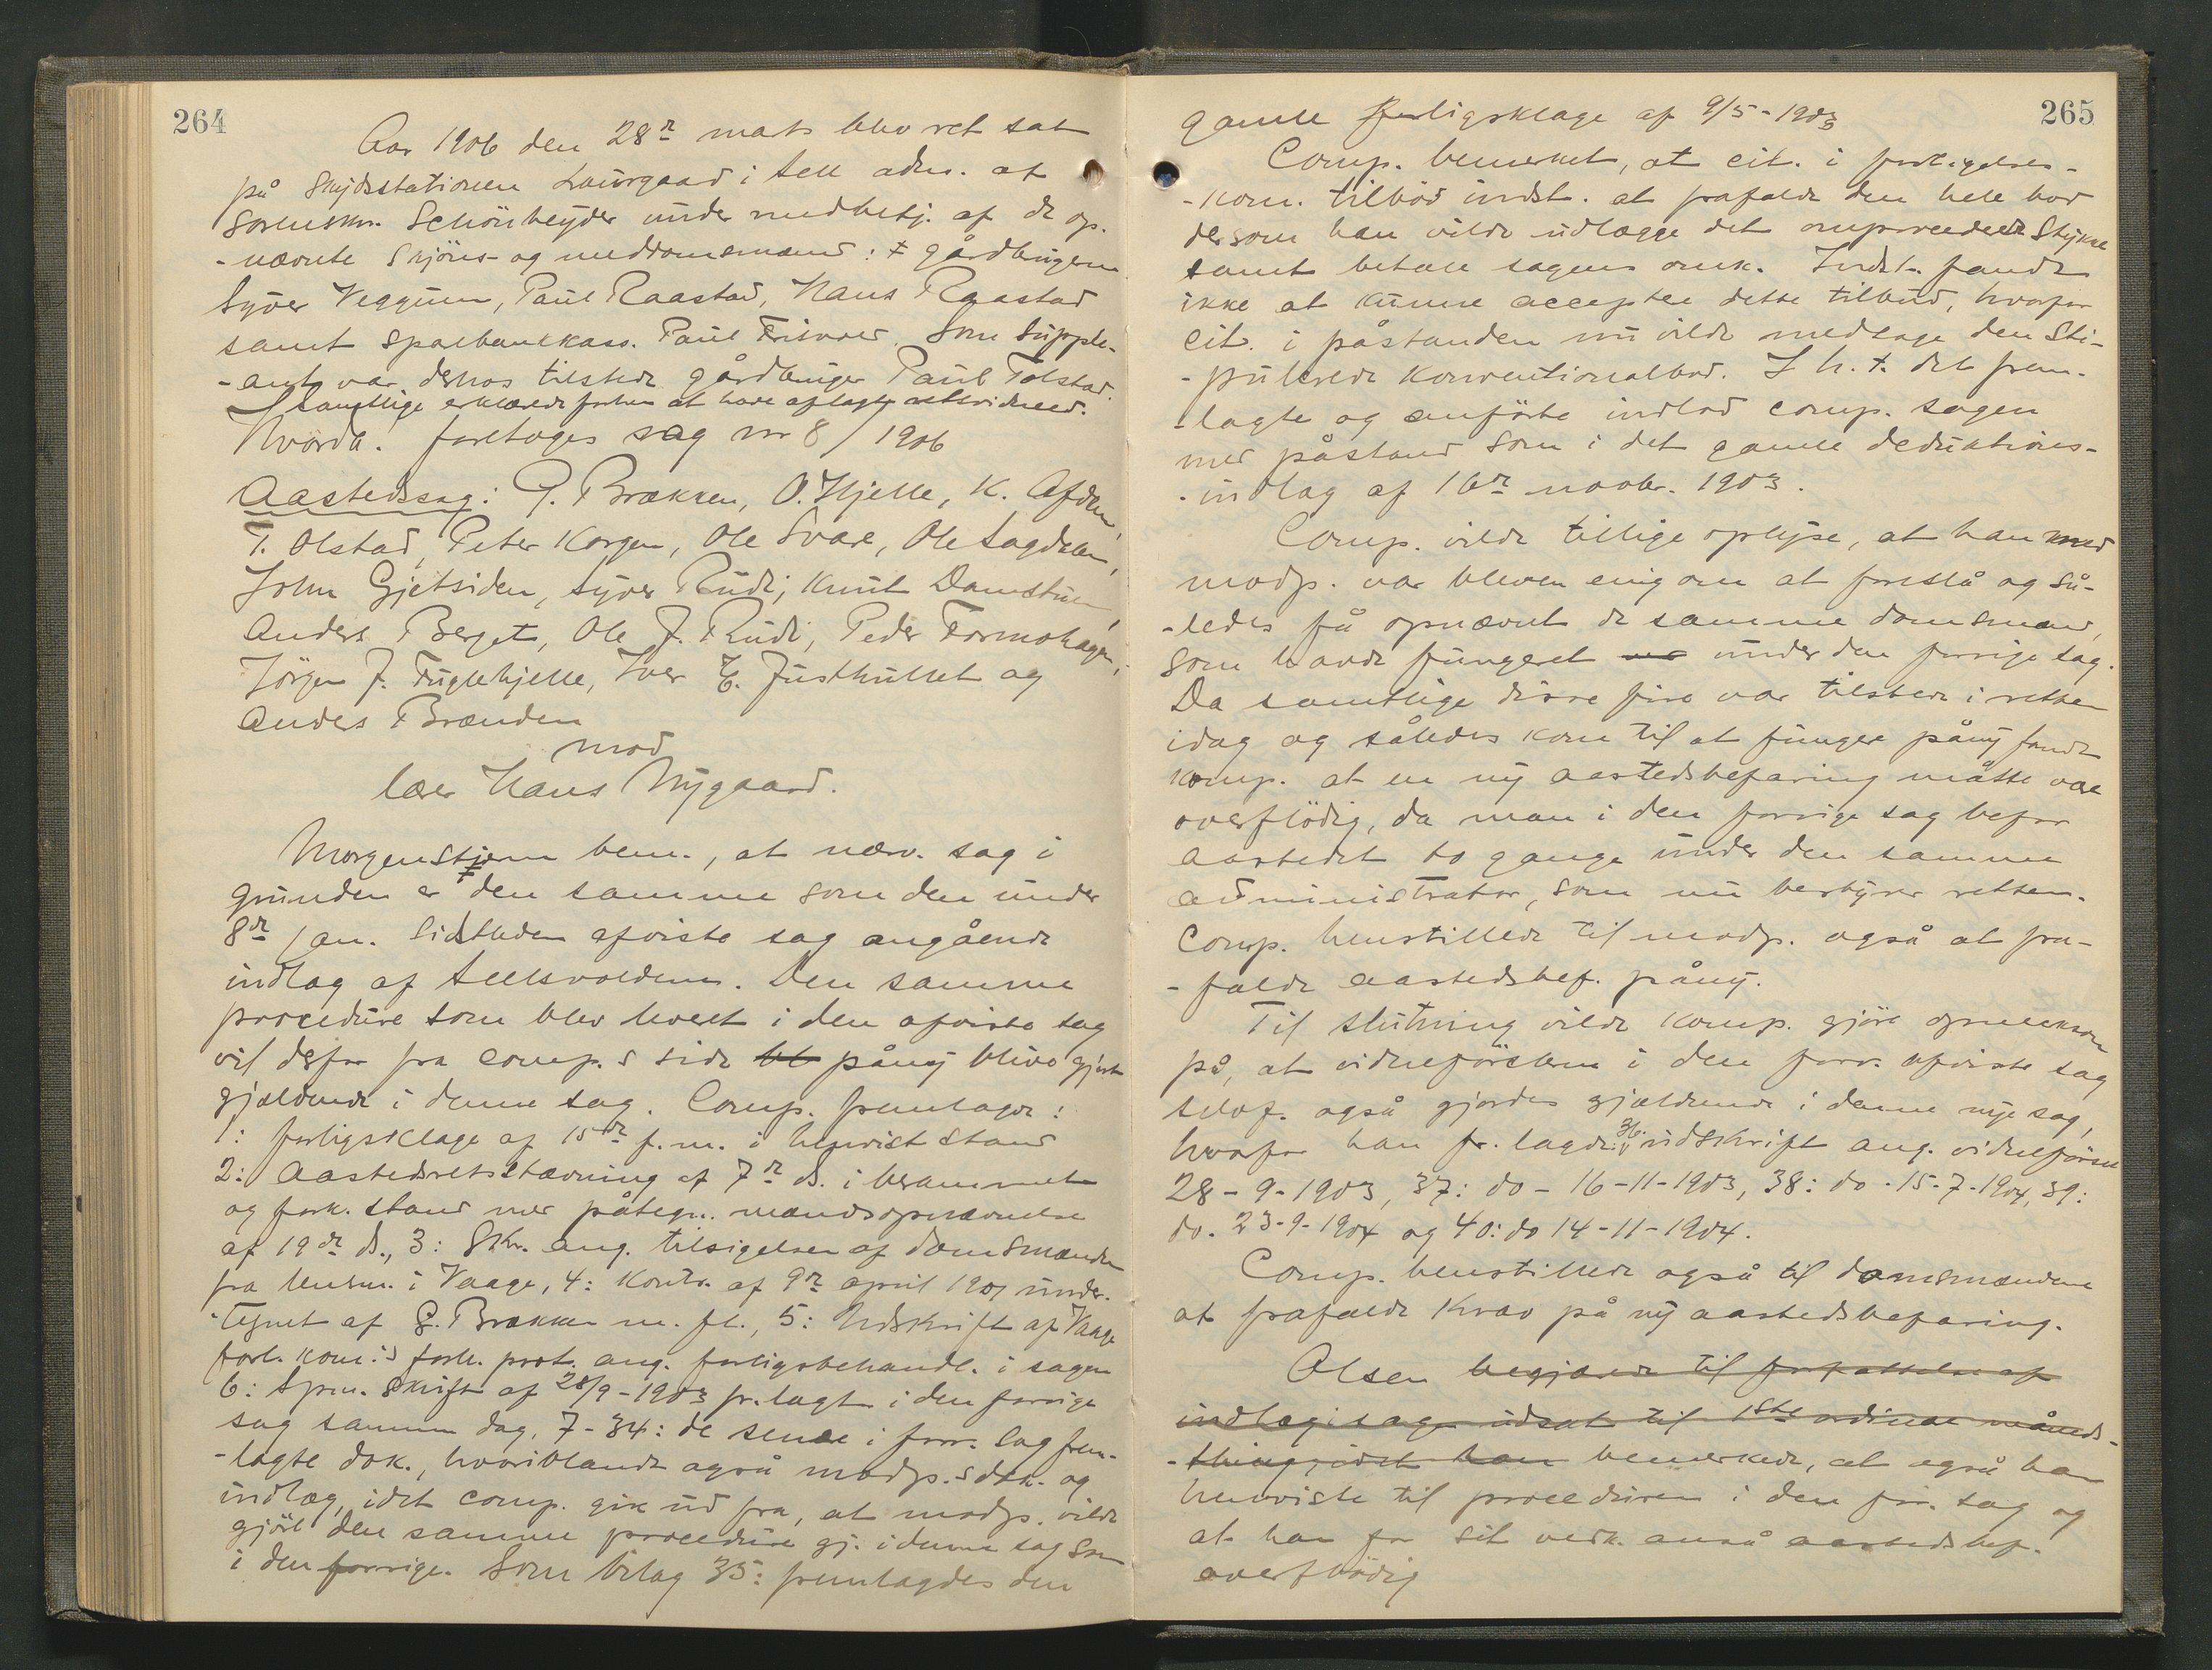 264
Aar 1906 den 28de mats blev ret sat
på Skydsstationen Laurgaard i Sell adm. af
Sorenskr. Schönheyder under medbetj. af de op-
-nævnte Skjöns- og meddomsmænd: gårdbrugerne
Syver Veggum, Paul Raastad, Hans Raastad
samt Sparebankkass. Paul Frisvoll. Som Supple-
-ant var derhos tilstede gårdbruger Paul Tolstad.
Samtlige erklærede forhen at have aflagt
Hvorda! foretoges sag nr 8/1906
Aastedssag: P. Brækken, O. Hjelle, K. Afdem,
T. Olstad, Peter Korgen, Ole Svare, Ole Lagdalen,
John Gjetsiden, Syver Rudi, Knut Damstuen
Anders Berget, Ole J. Rudi, Peder Formohagen,
Jörgen J. Fuglehjelle, Iver E. Justhullet og
Anders Brænden
mod
lærer Hans Nygaard.
Morgenstjerne bem., at nærv. sag i
grunden er den samme som den under
8de jan. Sidstleden afviste sag angående
indlag af Sellsvoldene. Den samme
procedure som blev levert i den afviste sag
vil derfor fra comp.s side bl påny blive gjort
gjældende i denne sag. Comp. fremlagde:
1: forligsklage af 15de f.m. i henvist stand
2: Aastedsretsstævning af 7de ds. i berammet
og fork. stand med påtegn. mændsopnævnelse
af 19de ds., 3: Skr. ang. tilsigelsen af domsmænden
fra lensm. i Vaage, 4: Kontr. af 9de april 1901 under-
-tegnet af G. Brækken m. fl., 5: Udskrift af Vaage
forl. kom.s forh. prot. ang. forligsbehandl. i sagen
6: Spm. Skrift af 28/9-1903 fr.lagt i den forrige
sag samme dag, 7-34: de senere i forr. Sag frem-
-lagte dok., hvoriblandt også modp.s dok. og
indlæg, idet comp. gik ud fra, at modp. vilde
gjöre den samme procedure gj. i denne sag som
i den forrige. Som bilag 35: fremlagdes den
265
gamle forligsklage af 9/5-1903
Comp. bemerket, at cit. i forligelses-
-kom. tilbød indst. at frafalde den hele bod
dersom han vilde udlægge det omprocederede Stykke
samt betale sagens omk. Indst. fandt
ikke at kunne acceptere dette tilbud, hvorfor
cit. i påstanden nu vilde medtage den Sti-
-pulerede Konventionalbod. I h. t. det frem-
-lagte og anförte indlod comp. sagen
med påstand som i det gamle deduktions-
-indlag af 16de novbr. 1903.
Comp. vilde tillige oplyse, at han med
modp. var bleven enig om at foreslå og så-
-ledes få opnævnt de samme domsmænd,
som havde fungeret under den forrige sag.
Da samtlige disse fire var tilstede i retten
idag og således kom til at fungere påny fandt
komp. at en ny aastedsbefaring måtte være
overflödig, da man i den forrige sag befor
aastedet to gange under den samme
administrator, som nu bestyrer retten.
Comp. henstillede til modp. også at fra-
-falde aastedsbef. påny.
Til slutning vilde komp. gjöre opmerksom
på, at vidneförslerne i den forr. afviste sag
selvf. også gjordes gjældende i denne nye sag,
hvorfor han fr. lagde: 36: udskrift ang. vidneförsel
28-9-1903, 37: do - 16-11-1903, 38: do. 15-7-1904, 39:
do. 23-9-1904 og 40: do 14-11-1904.
Comp. henstillede også til domsmændene
at frafalde Krav på ny aastedsbefaring.
Olsen begjærede til forfattelse af
indlæg sagen udsat til 1ste ordinære måneds-
-thing idet han bemerkede, at også han
henviste til proceduren i den for. sag og
at han for sit vedk. anså aastedsbef.
overflödig